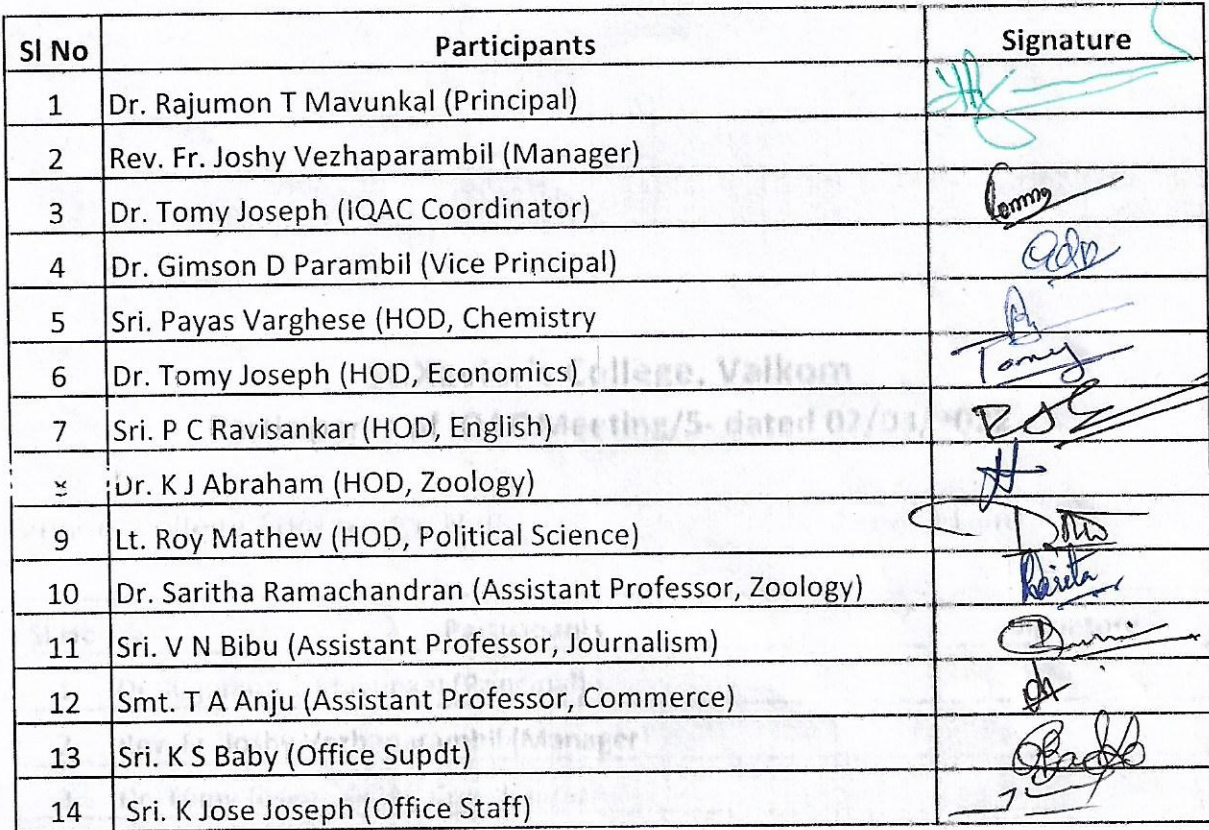 Sl No Participants Signature
1 Dr. Rajumon T Mavunkal (Principal)
2 Rev. Fr. Joshy Vezhaparambil (Manager)
3 Dr. Tomy Joseph (IQAC Coordinator)
4 Dr. Gimson D Parambil (Vice Principal)
5 Sri. Payas Varghese (HOD, Chemistry
6 Dr. Tomy Joseph (HOD, Economics) Tomy
7 Sri. P C Ravisankar (HOD, English)
Dr. K J Abraham (HOD, Zoology)
9 Lt. Roy Mathew (HOD, Political Science)
10 Dr. Saritha Ramachandran (Assistant Professor, Zoology)
11 Sri. V N Bibu (Assistant Professor, Journalism)
12 Smt. T A Anju (Assistant Professor, Commerce)
13 Sri. K S Baby (Office Supdt)
14 Sri. K Jose Joseph (Office Staff)